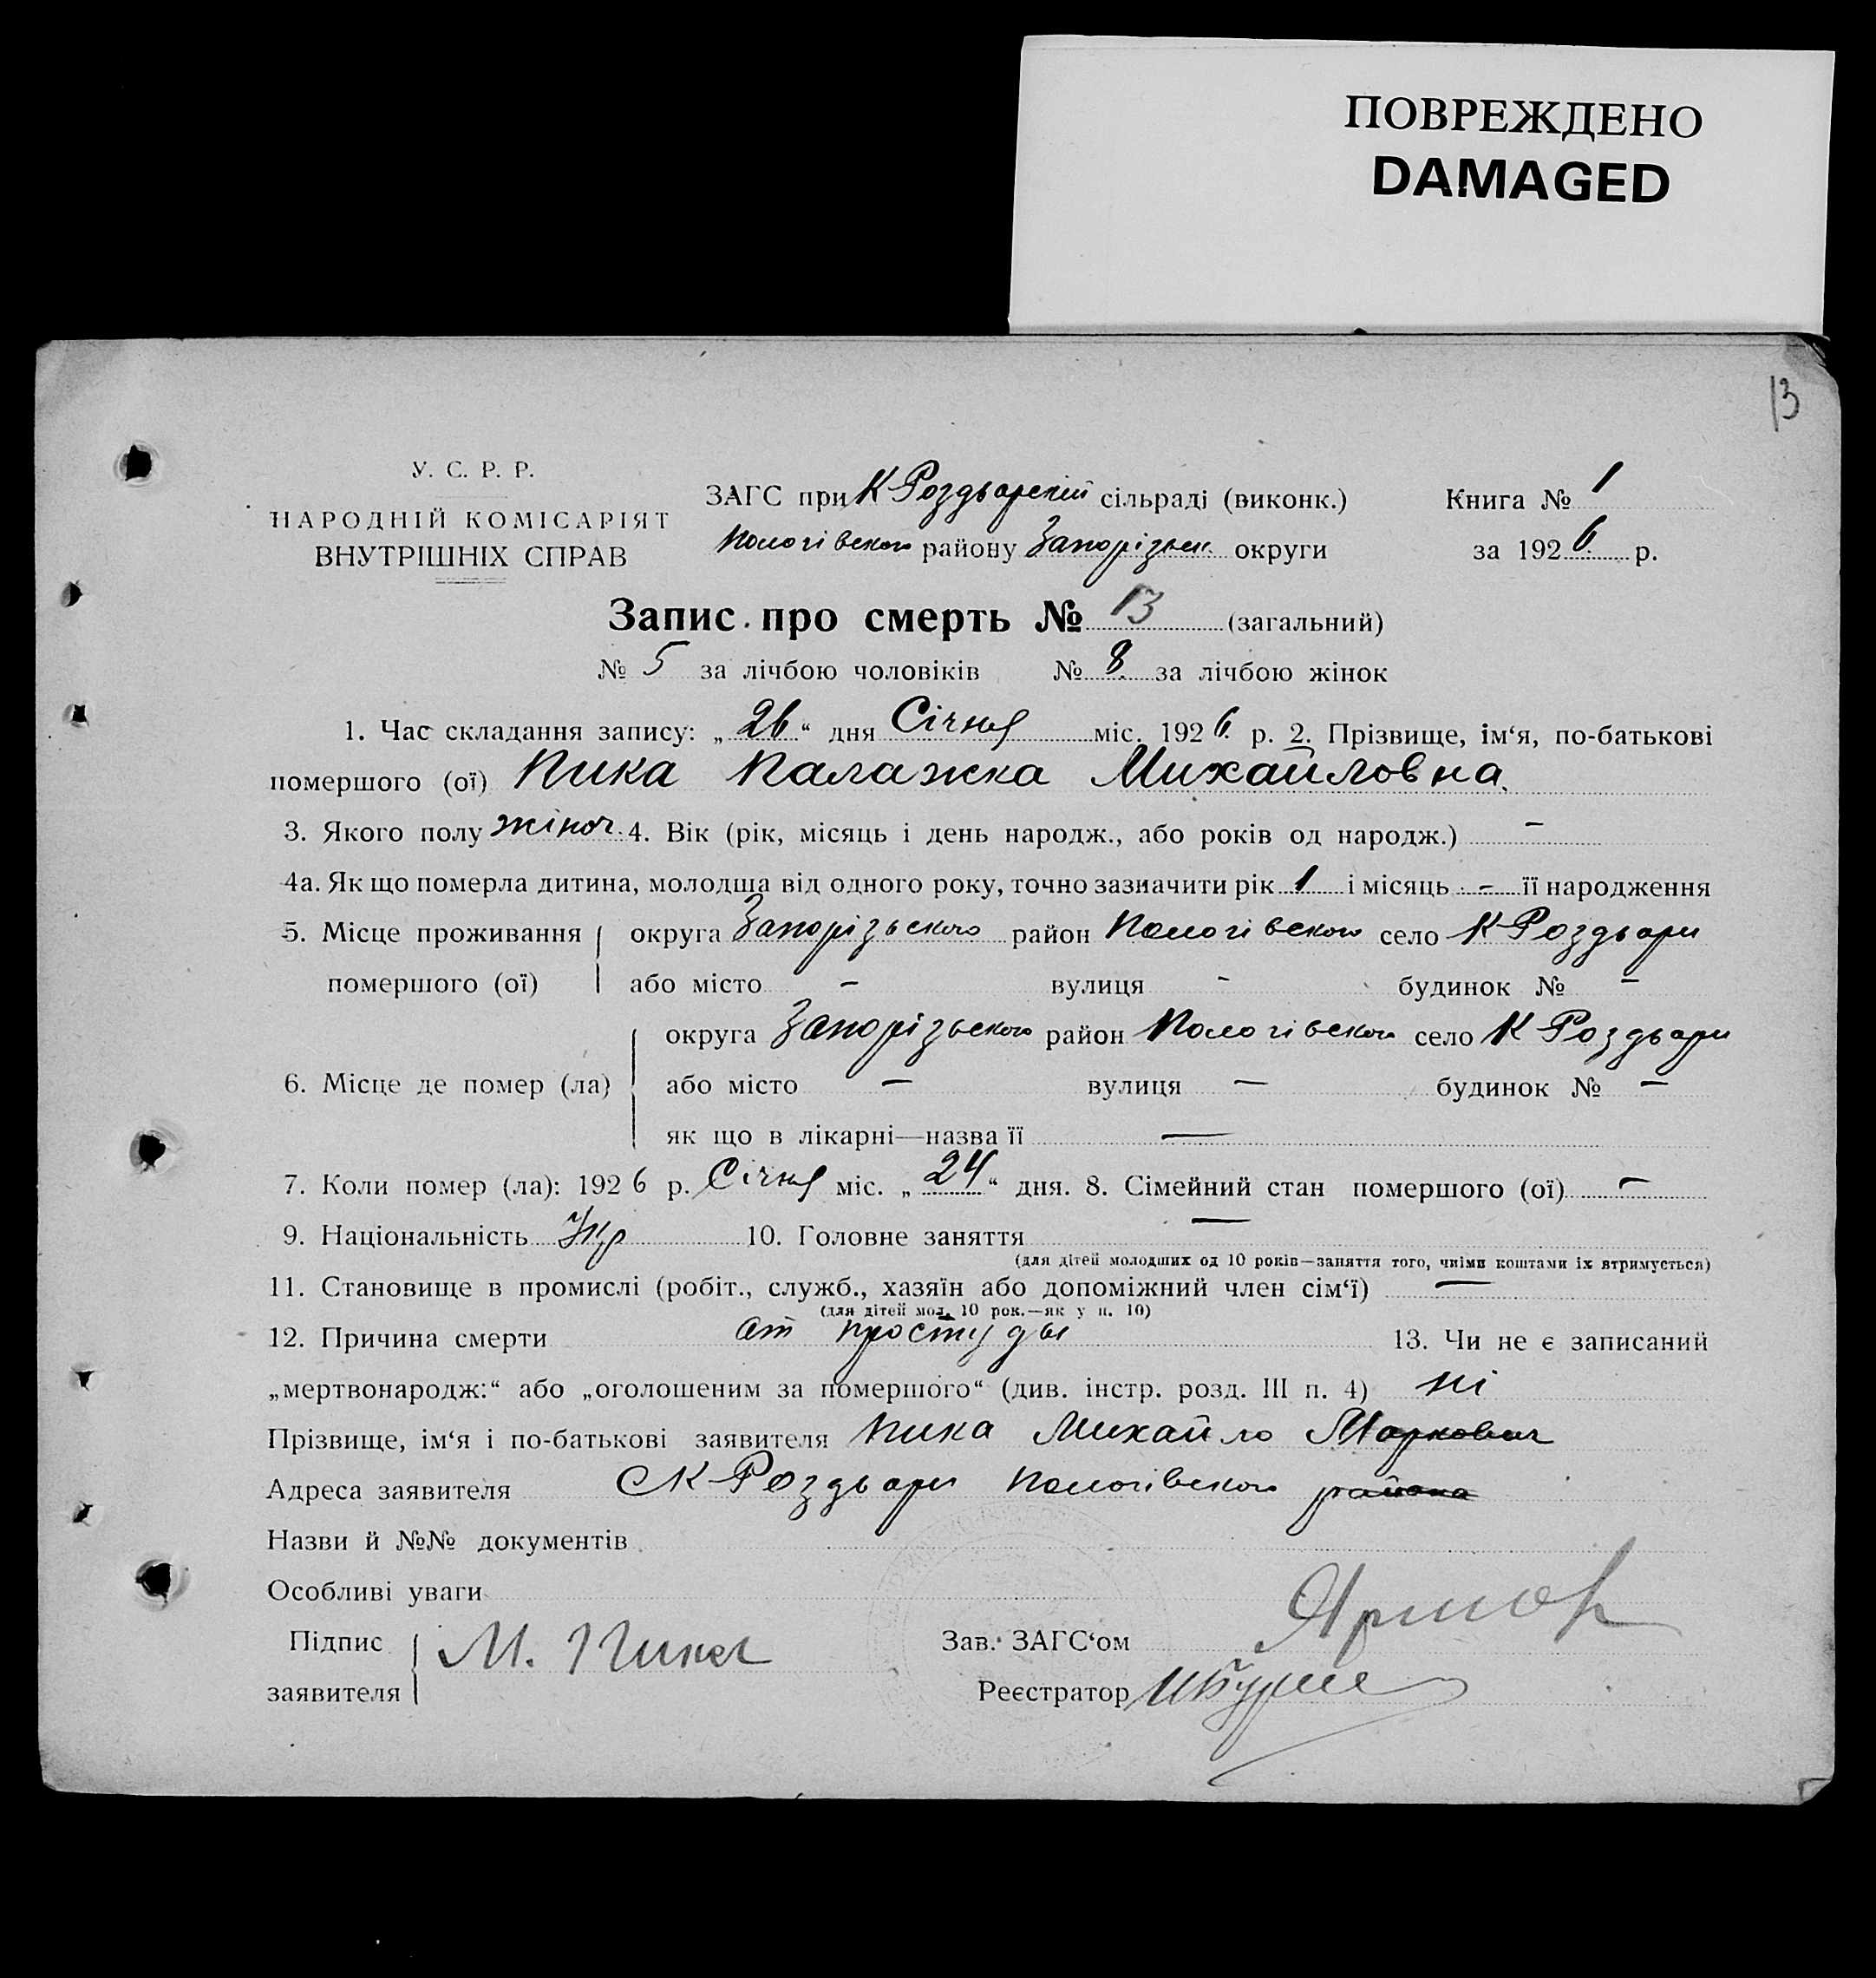 ПОВРЕЖДЕНО
DAMAGED
13
У. С. Р. Р.
НАРОДНІЙ КОМІСАРІЯТ
ВНУТРІШНІХ СПРАВ
ЗАГС при К Роздорскій сільраді (виконк.) Книга № 1
Пологівского району Запорізьк. округи за 1926 р.
Запис про смерть № 13 (загальний)
№ 5 за лічбою чоловіків № 8 за лічбою жінок
1. Час складання запису: „26“ дня Січня міс. 1926 р. 2. Прізвище, ім‘я, по-батькові
помершого (ої) Пика Палажка Михайловна.
3. Якого полу жіноч. 4. Вік (рік, місяць і день народж., або років од народж.) –
4а. Як що померла дитина, молодша від одного року, точно зазначити рік 1 і місяць - її народження
5. Місце проживання округа Запорізьского район Пологівского село К Роздьори
помершого (ої) або місто – вулиця - будинок № –
округа Запорізьского район Пологівского село К Роздьори
6. Місце де помер (ла) або місто — вулиця — будинок № —
як що в лікарні—назва її —
7. Коли помер (ла): 1926 р. Січня міс. „24“ дня. 8. Сімейний стан помершого (ої) –
9. Національність Укр 10. Головне заняття —
(для дітей молодших од 10 років—заняття того, чиїми коштами їх втримується)
11. Становище в промислі (робіт., служб., хазяїн або допоміжний член сім‘ї) —
(для дітей мол. 10 рок.—як у п. 10)
12. Причина смерти от простуды 13. Чи не є записаний
„мертвонародж:“ або „оголошеним за помершого“ (див. інстр. розд. III п. 4) ні
Прізвище, ім‘я і по-батькові заявителя Пика Михайло Маркович
Адреса заявителя С К Роздьори Пологівского района
Назви й №№ документів
Особливі уваги
Підпис М. Пика Зав. ЗАГС‘ом
заявителя Реєстратор